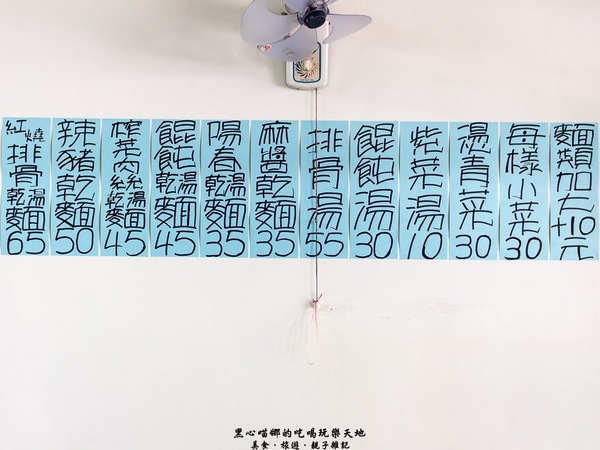 紅燒排骨乾湯麵65
辣豬乾麵50
榨菜肉絲乾湯麵45
餛飩乾湯麵45
陽春乾湯麵35
麻醬乾麵35
排骨湯55
餛飩湯30
紫菜湯10
燙青菜30
每樣小菜30
麵類加大+10元
黑心喵娜的吃喝玩樂天地
美食·旅遊·親子雜記